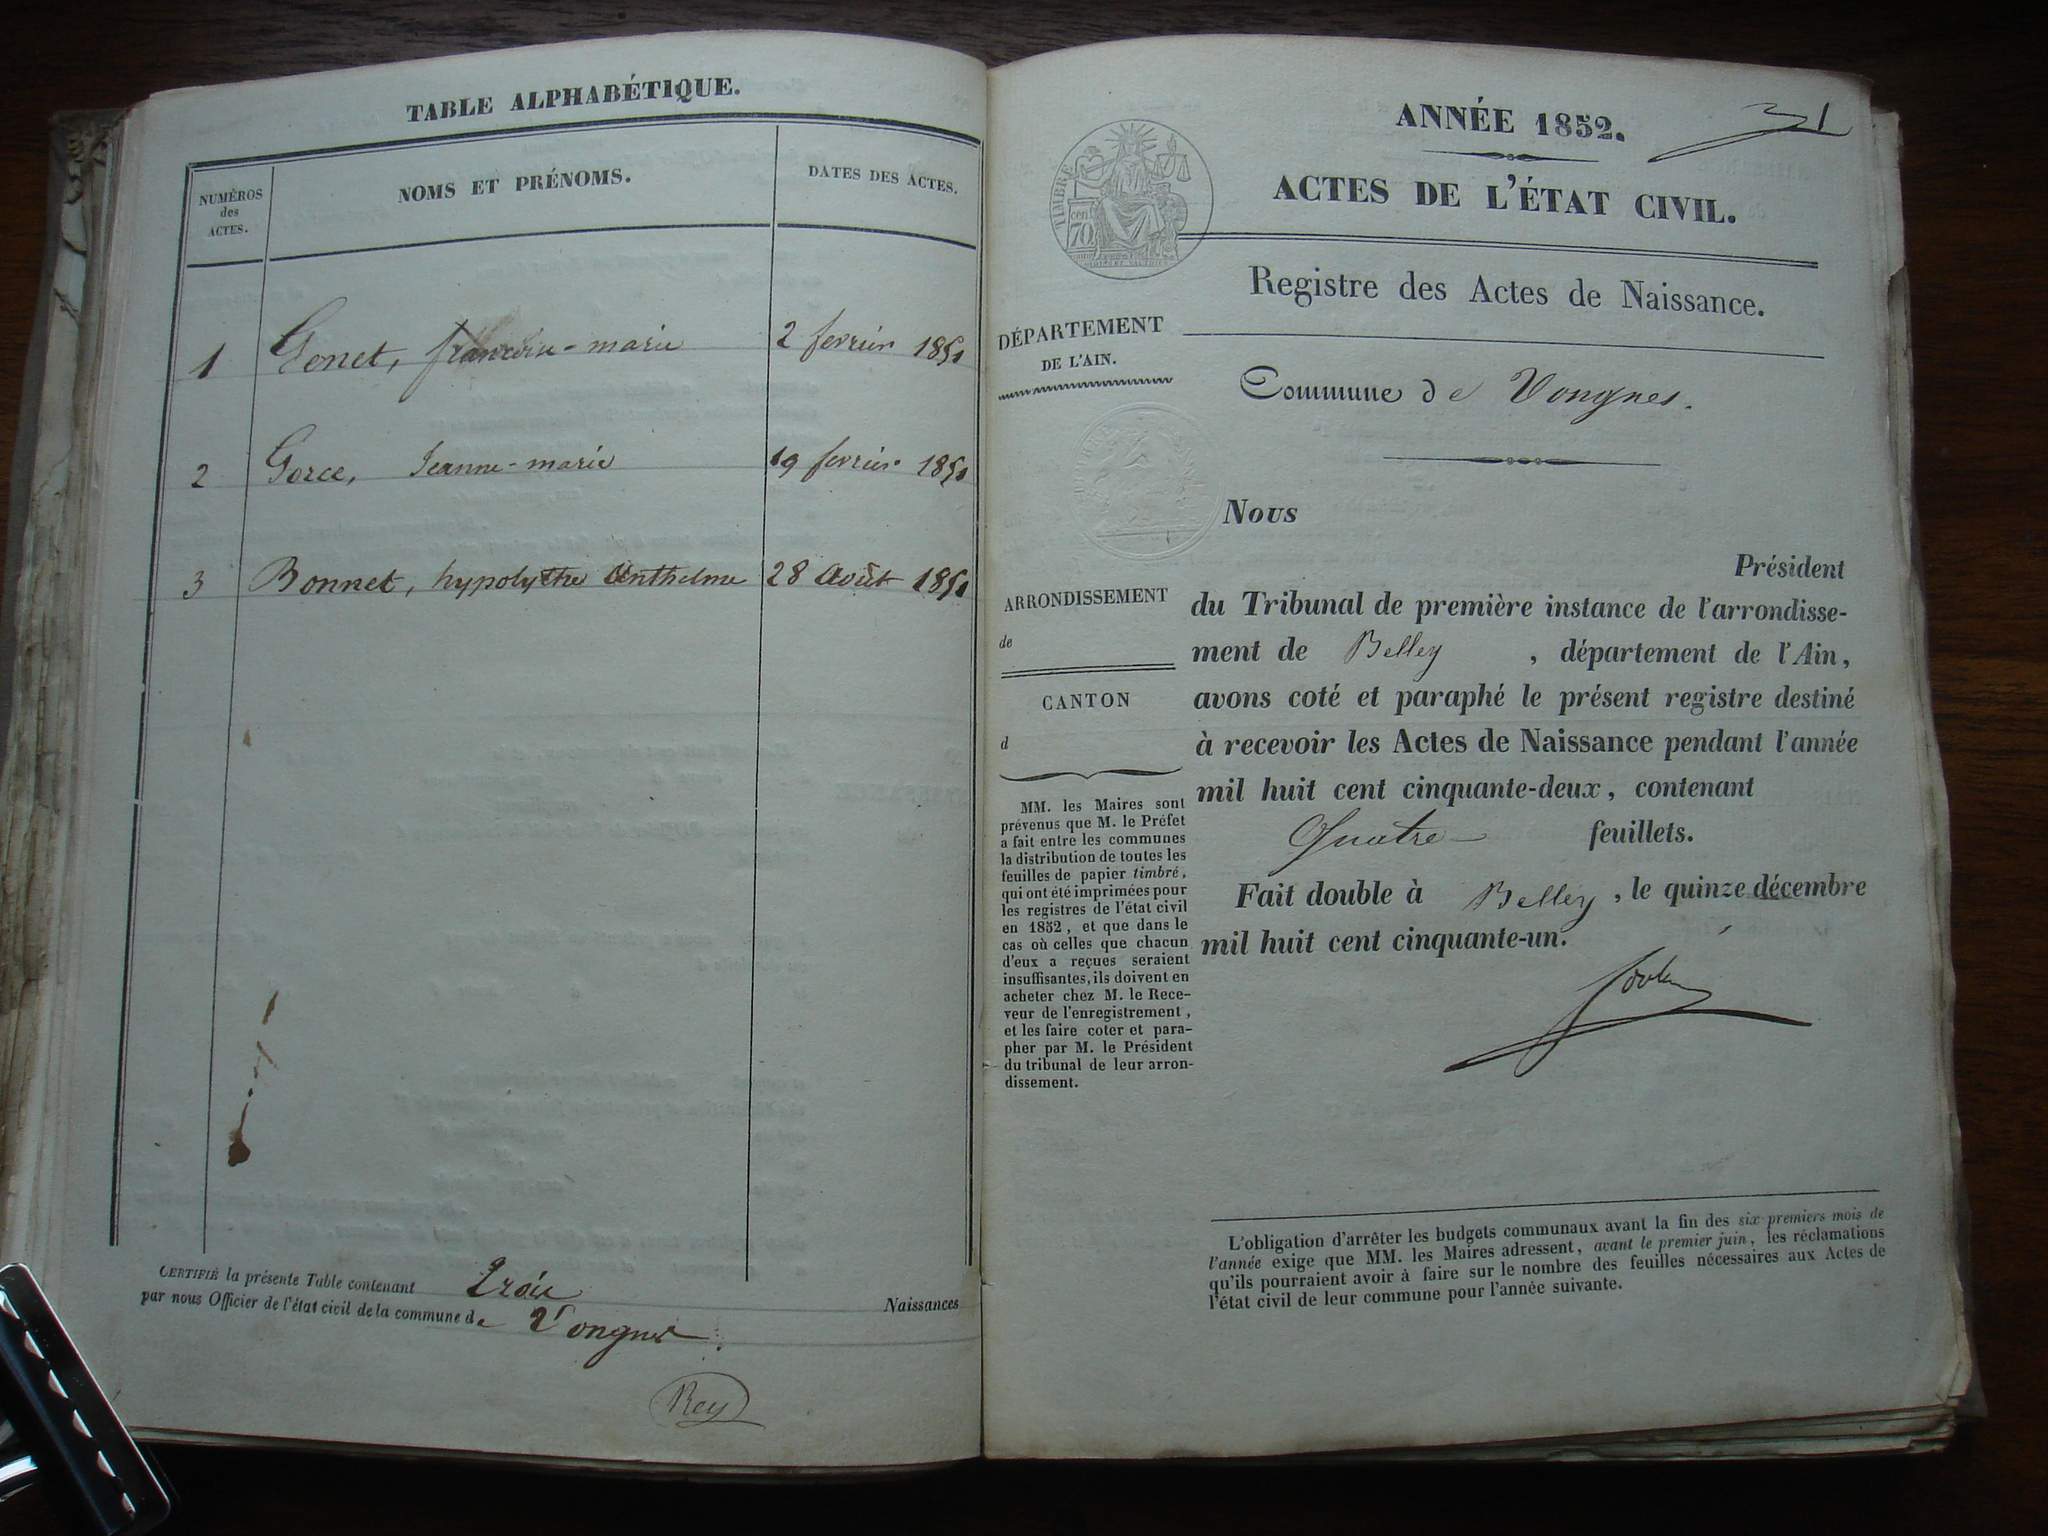 TABLE ALPHABÉTIQUE.
NUMÉROS
des
ACTES.
NOMS ET PRÉNOMS.
DATES DES ACTES.
1 Gonet, marie 2 fevrier 1851
2 Gorce, Jeanne-marie 19 fevrier 1851
3 Bonnet, hypolythe anthelme 28 Août 1851
CERTIFIÉ la présente Table contenant trois Naissances
par nous Officier de l'état civil de la commune de Vongnes
Rey
ANNÉE 1852.
ACTES DE L'ÉTAT CIVIL.
TIMBRE
cen
70
Registre des Actes de Naissance.
DÉPARTEMENT
DE L'AIN.
Commune de Vongnes.
ARRONDISSEMENT
de
CANTON
d
MM. les Maires sont
prévenus que M. le Préfet
a fait entre les communes
la distribution de toutes les
feuilles de papier timbré,
qui ont été imprimées pour
les registres de l'état civil
en 1852, et que dans le
cas où celles que chacun
d'eux a reçues seraient
insuffisantes, ils doivent en
acheter chez M. le Rece-
veur de l'enregistrement,
et les faire coter et para-
pher par M. le Président
du tribunal de leur arron-
dissement.
Nous
Président
du Tribunal de première instance de l'arrondisse-
ment de Belley, département de l'Ain,
avons coté et paraphé le présent registre destiné
à recevoir les Actes de Naissance pendant l'année
mil huit cent cinquante-deux, contenant
Quatre feuillets.
Fait double à Belley, le quinze décembre
mil huit cent cinquante-un.
L'obligation d'arrêter les budgets communaux avant la fin des six premiers mois de
l'année exige que MM. les Maires adressent, avant le premier juin, les réclamations
qu'ils pourraient avoir à faire sur le nombre des feuilles nécessaires aux Actes de
l'état civil de leur commune pour l'année suivante.